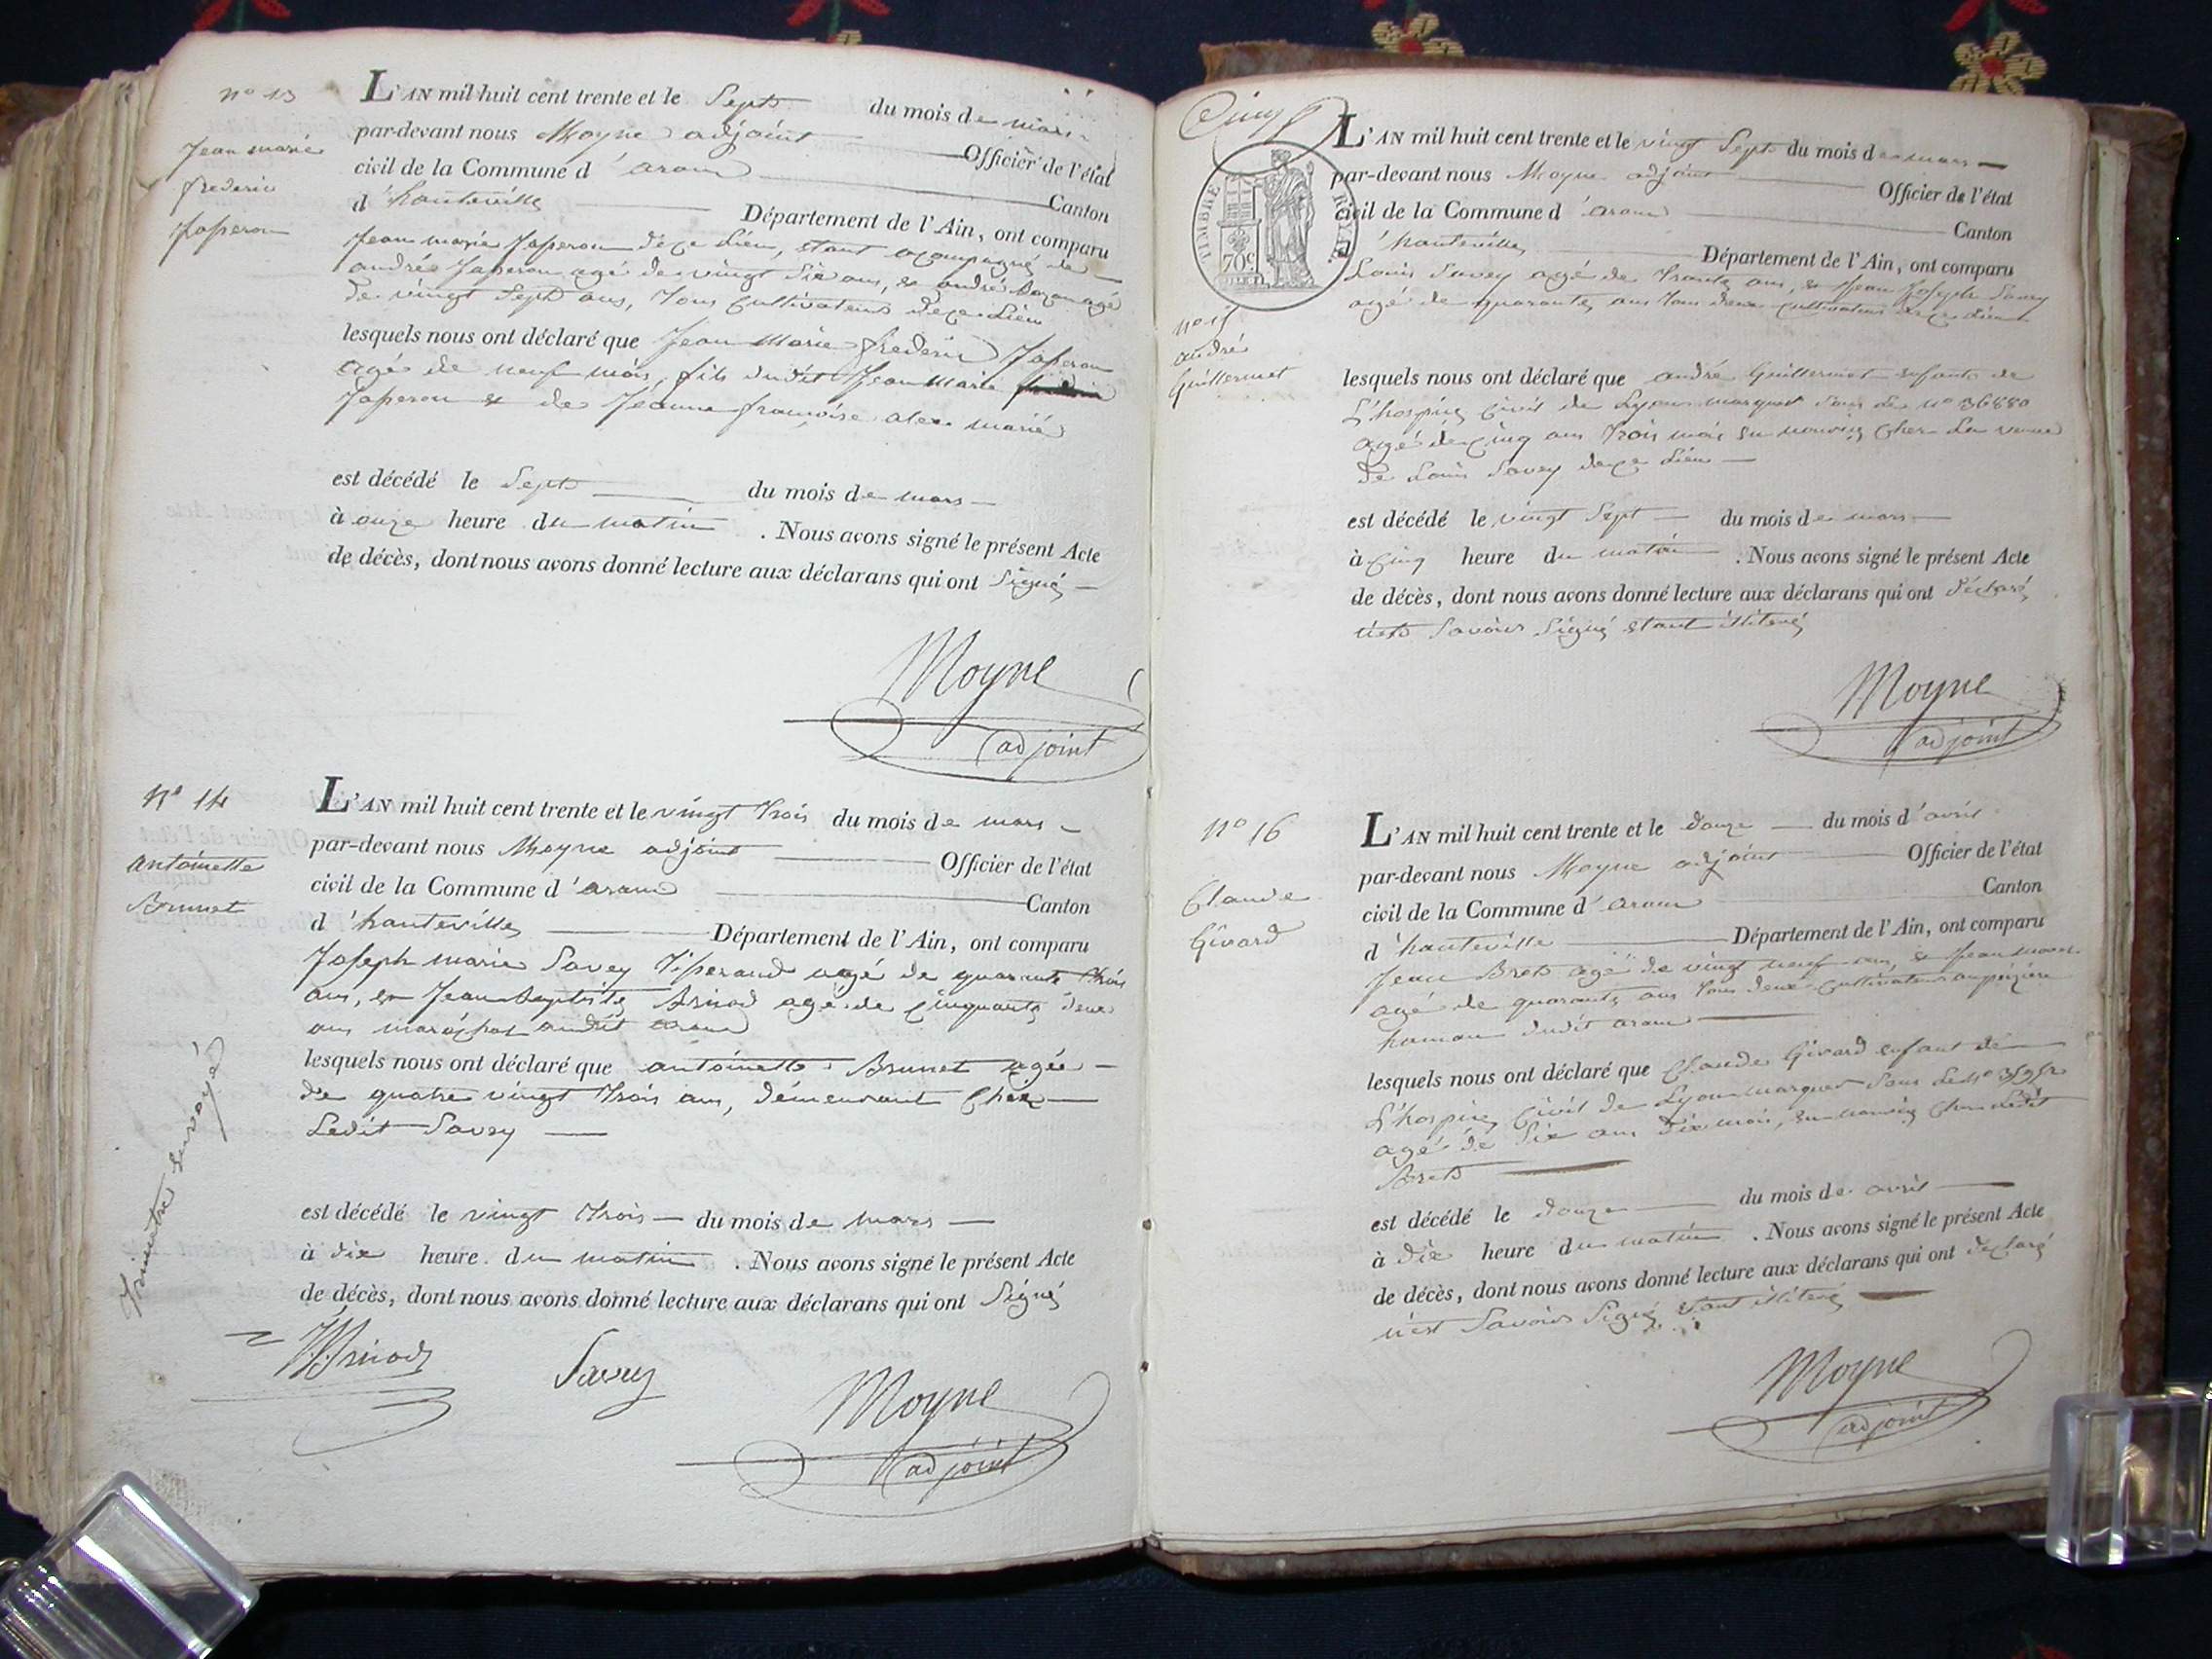 n° 13
Jean marie
frederic
Japerou
L'AN mil huit cent trente et le Sept du mois de mars
par-devant nous Moyne adjoint Officier de l'état
civil de la Commune d'aranc Canton
d'hauteville Département de l'Ain, ont comparu
Jean marie Japerou de ce Lieu, etant acompagné de
andré Japerou agé de vingt Six ans, et andré agé
de vingt Sept ans, Tous Cultivateurs de ce Lieu
lesquels nous ont déclaré que Jean Marie frederic Japerou
agé de neuf mois, fils dudit Jean Marie
Japerou et de Jeanne françoise marié
est décédé le Sept du mois de mars
à onze heure du matin . Nous avons signé le présent Acte
de décès, dont nous avons donné lecture aux déclarans qui ont Signé
Moyne
adjoint
N° 14
antoinette
Brunet
Trimetre envoyé
L'AN mil huit cent trente et le vingt Trois du mois de mars
par-devant nous Moyne adjoint Officier de l'état
civil de la Commune d'aranc Canton
d'hauteville Département de l'Ain, ont comparu
Joseph marie Savey Tiperaud agé de quarante Trois
ans, et Jean Baptiste Brinod agé de Cinquante deux
ans maréchal audit aranc
lesquels nous ont déclaré que antoinette Brunet agée
de quatre vingt Trois ans, démeurant Chez
Ledit Savey
est décédé le vingt Trois du mois de mars
à dix heure du matin . Nous avons signé le présent Acte
de décès, dont nous avons donné lecture aux déclarans qui ont Signé
JB Brinod Savey
Moyne
adjoint
Cinq
TIMBRE ROYAL
70c
n° 15
andré
Guillermet
L'AN mil huit cent trente et le vingt Sept du mois de mars
par-devant nous Moyne adjoint Officier de l'état
civil de la Commune d'aranc Canton
d'hauteville Département de l'Ain, ont comparu
Louis Savey agé de Trante ans, et Jean Joseph Savey
agé de quarante ans tous deux cultivateurs de ce Lieu
lesquels nous ont déclaré que andré Guillermet enfant de
L'hospice Civil de Lyon marquet Sous Le n° 36880
agé de Cinq ans Trois mois en nourice Cher La veuve
de Louis Savey de ce Lieu
est décédé le vingt Sept du mois de mars
à Cinq heure du matin . Nous avons signé le présent Acte
de décès, dont nous avons donné lecture aux déclarans qui ont déclaré
Savoir Signé etant illiteré
Moyne
adjoint
N° 16
Claude
Givard
L'AN mil huit cent trente et le douze du mois d'avril
par-devant nous Moyne adjoint Officier de l'état
civil de la Commune d'aranc Canton
d'hauteville Département de l'Ain, ont comparu
Jean Bret agé de vingt neuf ans, et Jean
agé de quarante ans Tous deux Cultivateurs
hamau dudit aranc
lesquels nous ont déclaré que Claude Givard enfant de
L'hospice Civil de Lyon marquet Sous Le N°
agé de Six ans dix mois, en nourice Cher Ledit
Bret
est décédé le douze du mois de avril
à dix heure du matin . Nous avons signé le présent Acte
de décès, dont nous avons donné lecture aux déclarans qui ont déclaré
n'est Savoir Signé etant illiteré
Moyne
adjoint